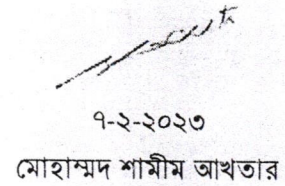 ৭-২-২০২৩
মোহাম্মদ শামীম আখতার